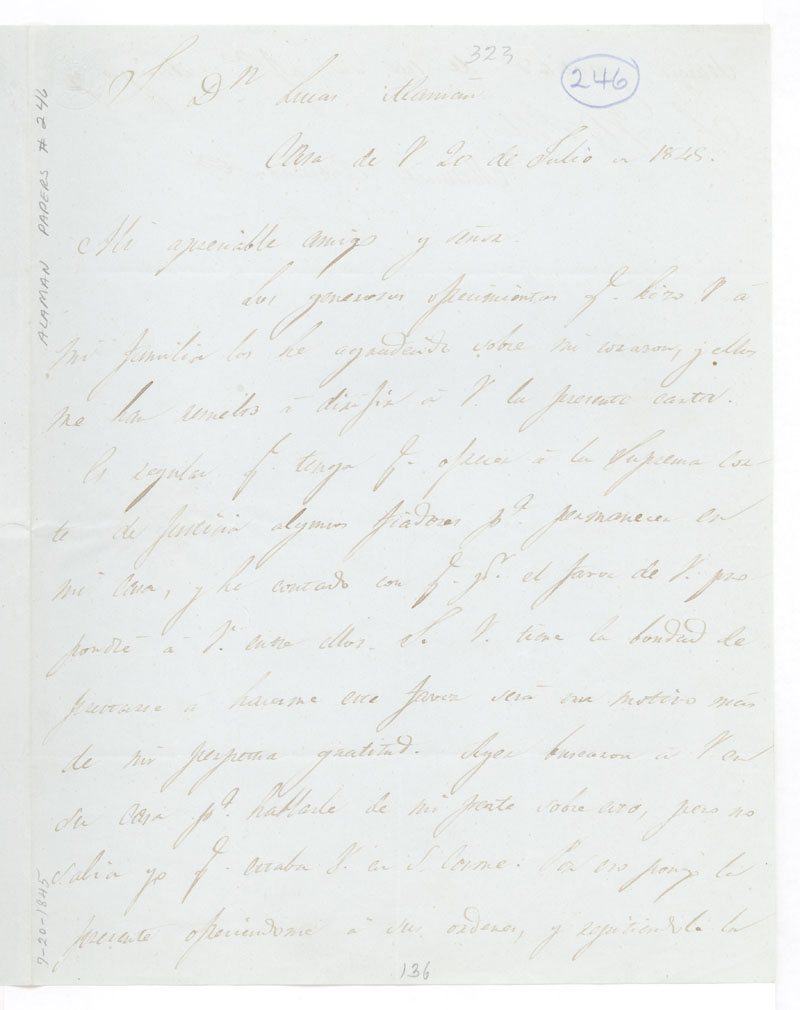 323
246
Sr Dn Lucas Alamán
Casa de V. 20 de Julio de 1845.
Mi apreciable amigo y señor.
Los generosos ofrecimientos q. hizo V. á
mi familia los he agradecido sobre mi corazon, y ellos
me han resuelto á dirijir á V. la presente carta.
Es regular q. tenga q. ofrecer á la Suprema Cor-
te de Justicia algunos fiadores pa. permanecer en
mi casa, y he contado con q. pr. el favor de V. pro-
pondré á V. entre ellos. Si V. tiene la bondad de
prestarse á hacerme este favor será un motivo más
de mi perpetua gratitud. Ayer buscaron á V. en
su casa pa. hablarle de mi parte sobre esto, pero no
sabia yo q. estaba V. en S. Cosme. Por eso pongo la
presente ofreciendome á sus ordenes, y repitiendole la
136
ALAMAN PAPERS # 246
7-20-1845